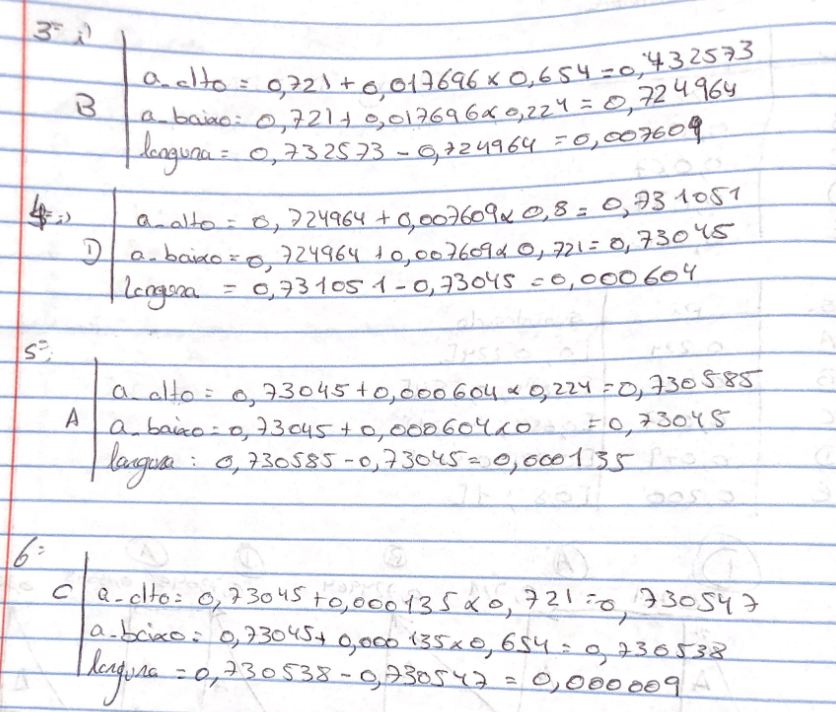 3= i)
a_alto = 0,721 + 0,017696 x 0,654 = 0,432573
B a_baixo = 0,721 + 0,017696 x 0,224 = 0,724964
largura = 0,732573 - 0,724964 = 0,007609
4= i)
a_alto = 0,724964 + 0,007609 x 0,8 = 0,731051
D a_baixo = 0,724964 + 0,007609 x 0,721 = 0,73045
largura = 0,731051 - 0,73045 = 0,000604
5=
a_alto = 0,73045 + 0,000604 x 0,224 = 0,730585
A a_baixo = 0,73045 + 0,000604 x 0 = 0,73045
largura : 0,730585 - 0,73045 = 0,000135
6=
C a_alto = 0,73045 + 0,000135 x 0,721 = 0,730547
a_baixo = 0,73045 + 0,000135 x 0,654 = 0,730538
largura = 0,730538 - 0,730547 = 0,000009